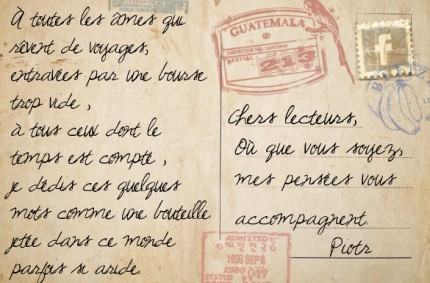 À toutes les âmes qui
rêvent de voyages,
entravées par une bourse
trop vide,
à tous ceux dont le
temps est compté,
je dédis ces quelques
mots comme une bouteille
jetée dans ce monde
parfois si aride.
GUATEMALA
ARRIVAL
213
f
Chers lecteurs,
Où que vous soyez,
mes pensées vous
accompagnent.
Piotr
ADMITTED
1998 SEP 6
STATUS